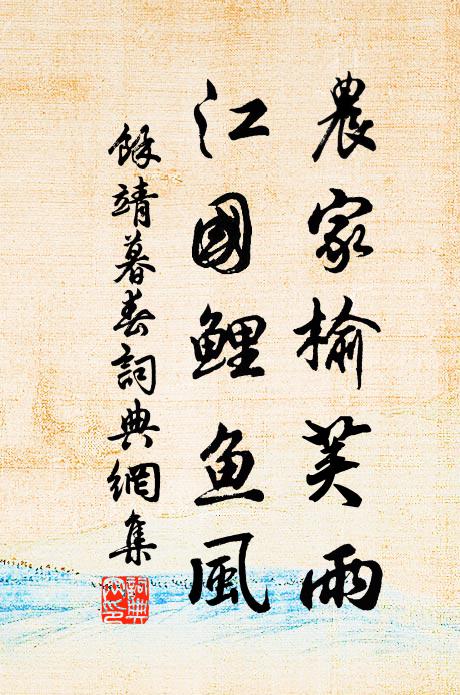 農家榆莢雨
江國鯉魚風
餘靖暮春詞典網集